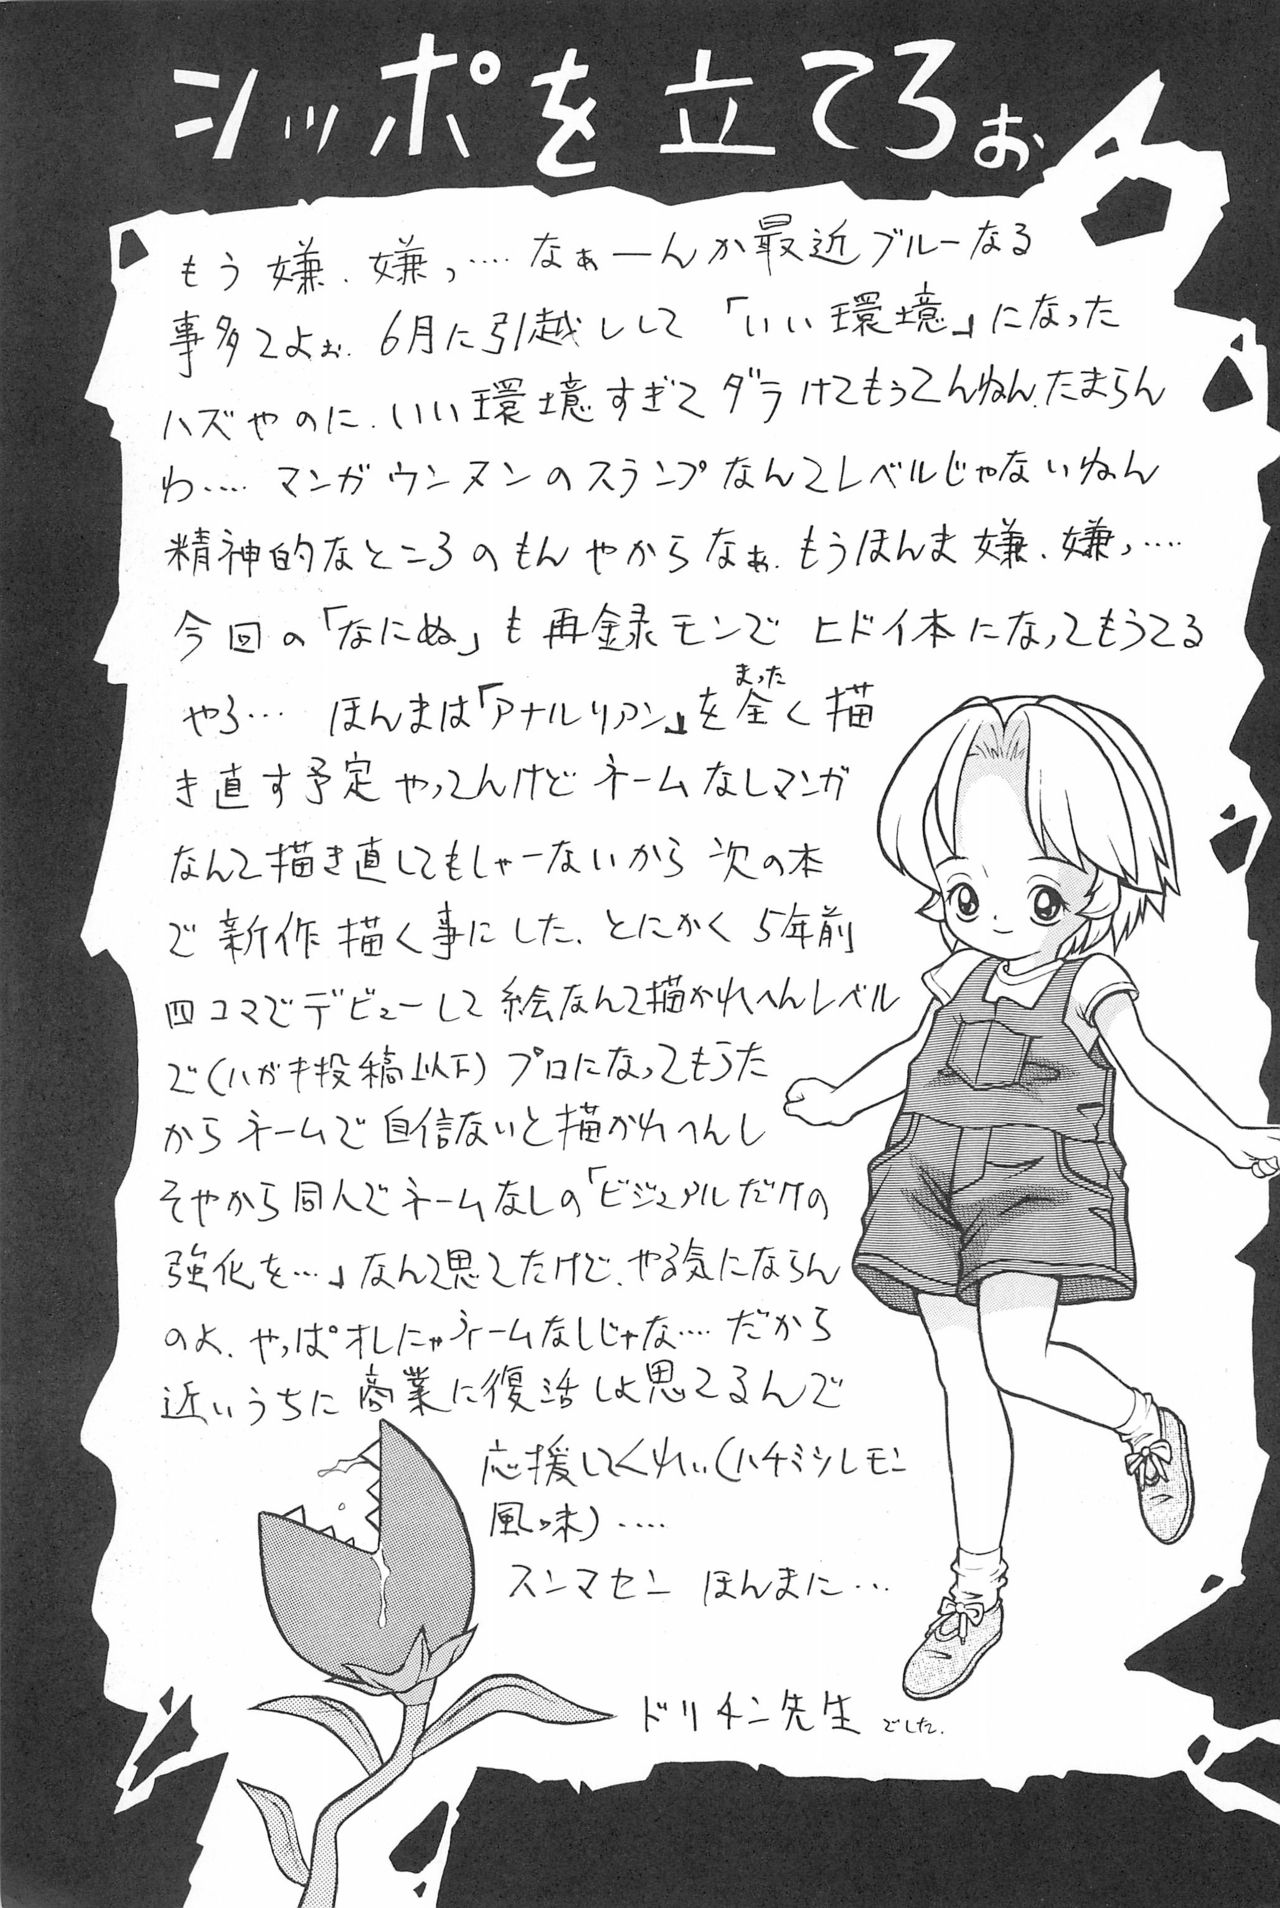 シッポを立てろぉ
もう嫌、嫌っ…. なぁーんか最近ブルーなる
事多てよぉ. 6月に引越しして「いい環境」になった
ハズやのに. いい環境すぎてダラけてもぅてんねん. たまらん
わ…. マンガウンヌンのスランプなんてレベルじゃないねん
精神的なところのもんやからなぁ. もうほんま嫌、嫌っ….
今回の「なにぬ」も再録モンで ヒドイ本になってもうてる
やろ… ほんまは「アナルリアン」を全く描
まった
き直す予定やってんけど ネームなしマンガ
なんて描き直してもしゃーないから 次の本
で新作描く事にした. とにかく 5年前
四コマでデビューして 絵なんて描かれへんレベル
で(ハガキ投稿以下) プロになってもうた
からネームで自信ないと描かれへんし
そやから同人でネームなしの「ビジュアルだけの
強化を…」なんて思てたけど、やる気にならん
のよ. やっぱオレにゃネームなしじゃな…. だから
近いうちに商業に復活しよ思てるんで
応援してくれぃ(ハチミツレモン
風味)….
スンマセン ほんまに…
ドリチン先生 でした.